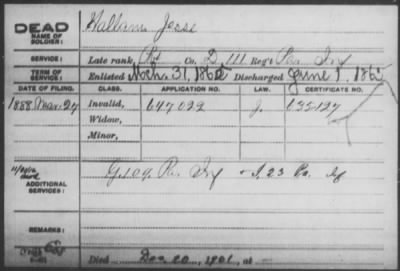 DEAD
NAME OF SOLDIER: Jesse
SERVICE: Late rank Co. D, 111 Reg't Pa. Inf
TERM OF SERVICE: Enlisted Mch. 31, 1862 Discharged June 1, 1865
DATE OF FILING. CLASS. APPLICATION NO. LAW. CERTIFICATE NO.
1888 Mar. 27 Invalid, 647022 J.
Widow,
Minor,
ADDITIONAL SERVICES: G, 109. Pa. Inf + I, 23 Pa. Inf
REMARKS:
Died Dec 20, 1901, at —